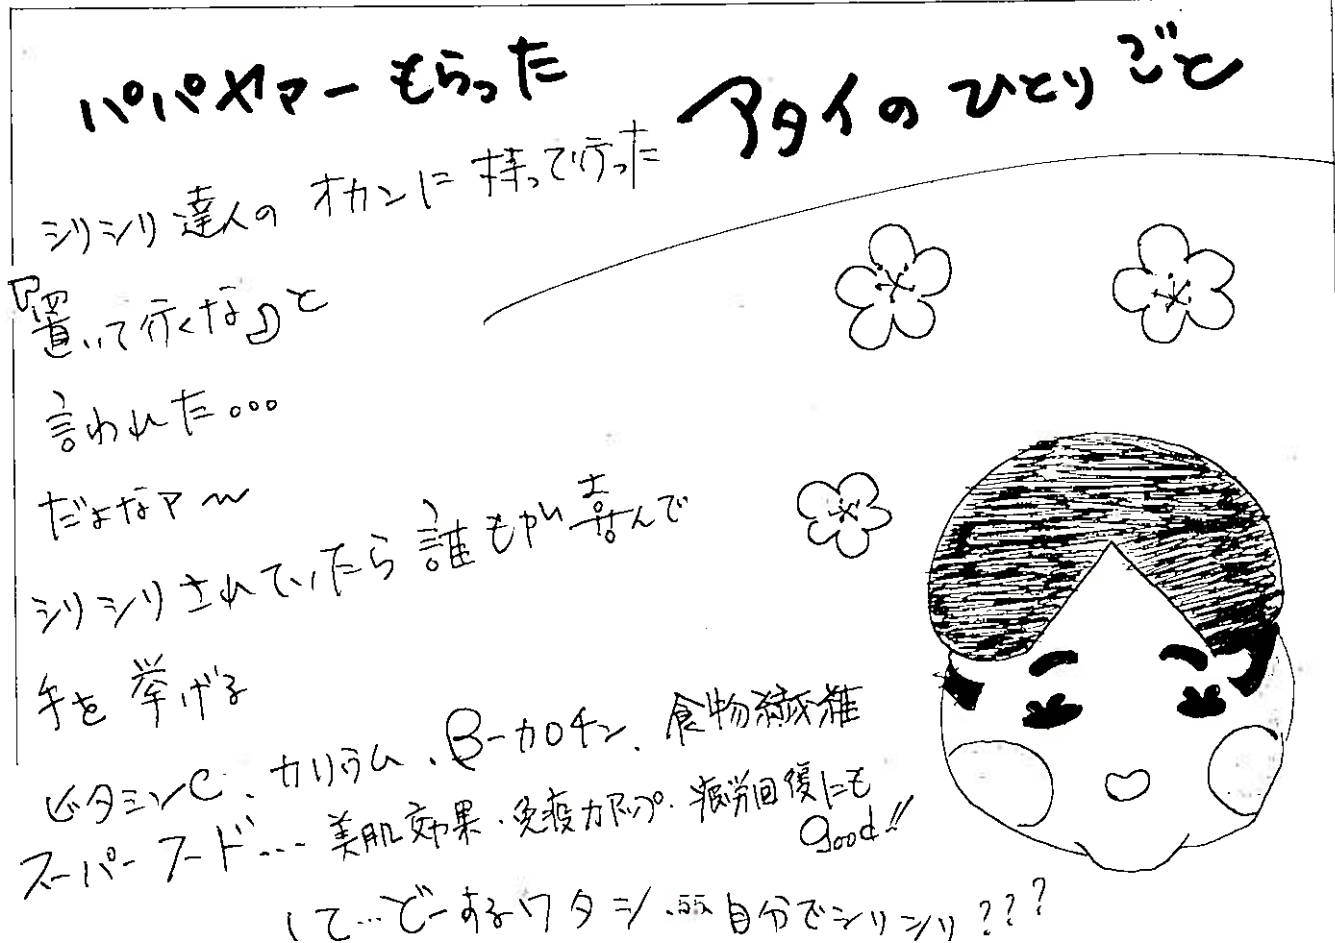 パパヤァーもらった
アタイのひとりごと
シリシリ達人のオカンに持って行った
『置いて行くな』と
言われた...
だよなァ〜
シリシリされていたら誰もが喜んで
手を挙げる
ビタミンC、カリウム、β-カロチン、食物繊維
スーパーフード...美肌効果・免疫力アップ・疲労回復にも
good!!
して...どーするワタシ...自分でシリシリ???